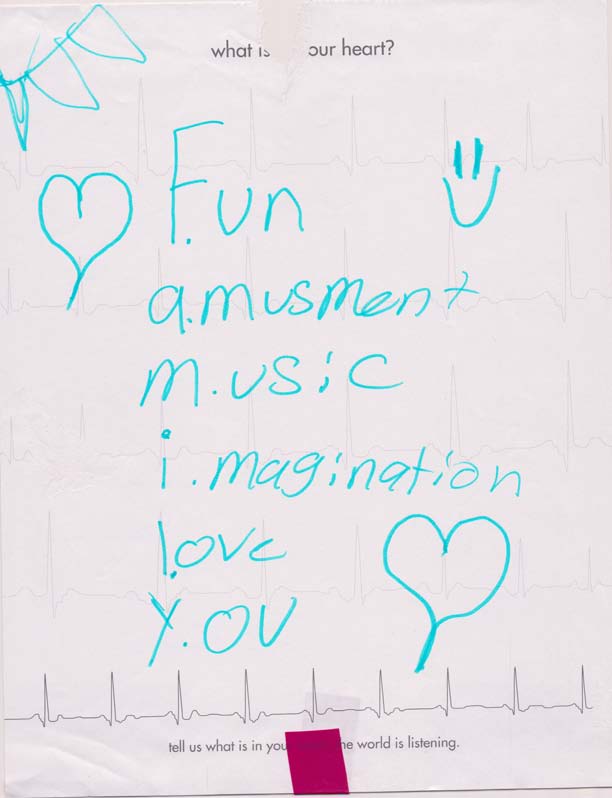 what is our heart?
F.un
a.musment
m.usic
i.magination
l.ove
Y.ou
tell us what is in you he world is listening.